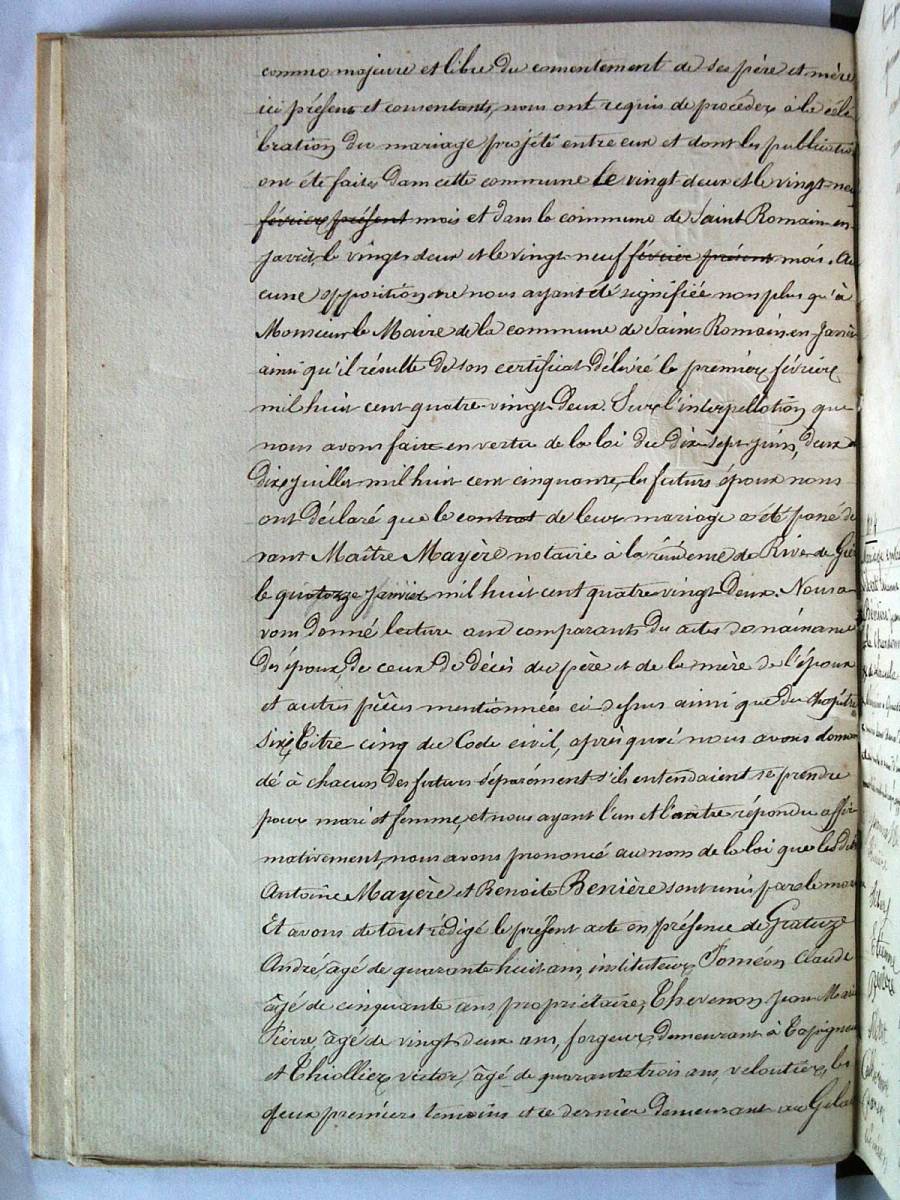 comme majeure et libre du consentement de ses père et mère
ici présents et consentants, nous ont requis de procéder à la célé
bration du mariage projété entre eux et dont les publications
ont été faites dans cette commune le vingt deux et le vingt-neuf
février présent mois et dans la commune de Saint Romain-en-
jarèt, le vingt deux et le vingt-neuf février présent mois. Au
cune opposition ne nous ayant été signifiée non plus qu'à
Monsieur le Maire de la commune de Saint Romain en Jarèt
ainsi qu'il résulte de son certificat délivré le premier février
mil huit cent quatre-vingt-Deux. Sur l'interpellation que
nous avons faite en vertu de la loi du dix-sept juin, deux et
dix juillet mil huit cent cinquante, les futurs époux nous
ont déclaré que le contrat de leur mariage a été passé de
vant Maître Mayère notaire à la résidence de Rive-de-Gier
le janvier mil huit cent quatre-vingt-Deux. Nous a
vons donné lecture aux comparants des actes de naissance
des époux, de ceux de décès du père et de la mère de l'époux
et autres pièces mentionnées ci-dessus ainsi que du chapitre
six, titre cinq du Code civil, après quoi nous avons deman
dé à chacun des futurs séparément s'ils entendaient se prendre
pour mari et femme, et nous ayant l'un et l'autre répondu affir
mativement, nous avons prononcé au nom de la loi que les dits
Antoine Mayère et Benoite Benière sont unis par le mari
Et avons de tout rédigé le présent acte en présence de
André, âgé de quarante huit ans, instituteur, Joméon Claude
âgé de cinquante ans propriétaire, Thevenon Jean Marie
Pierre, âgé de vingt deux ans, forgeur, demeurant à
et Thiollier victor, âgé de quarante trois ans, veloutier, les
deux premiers témoins et ce dernier demeurant au